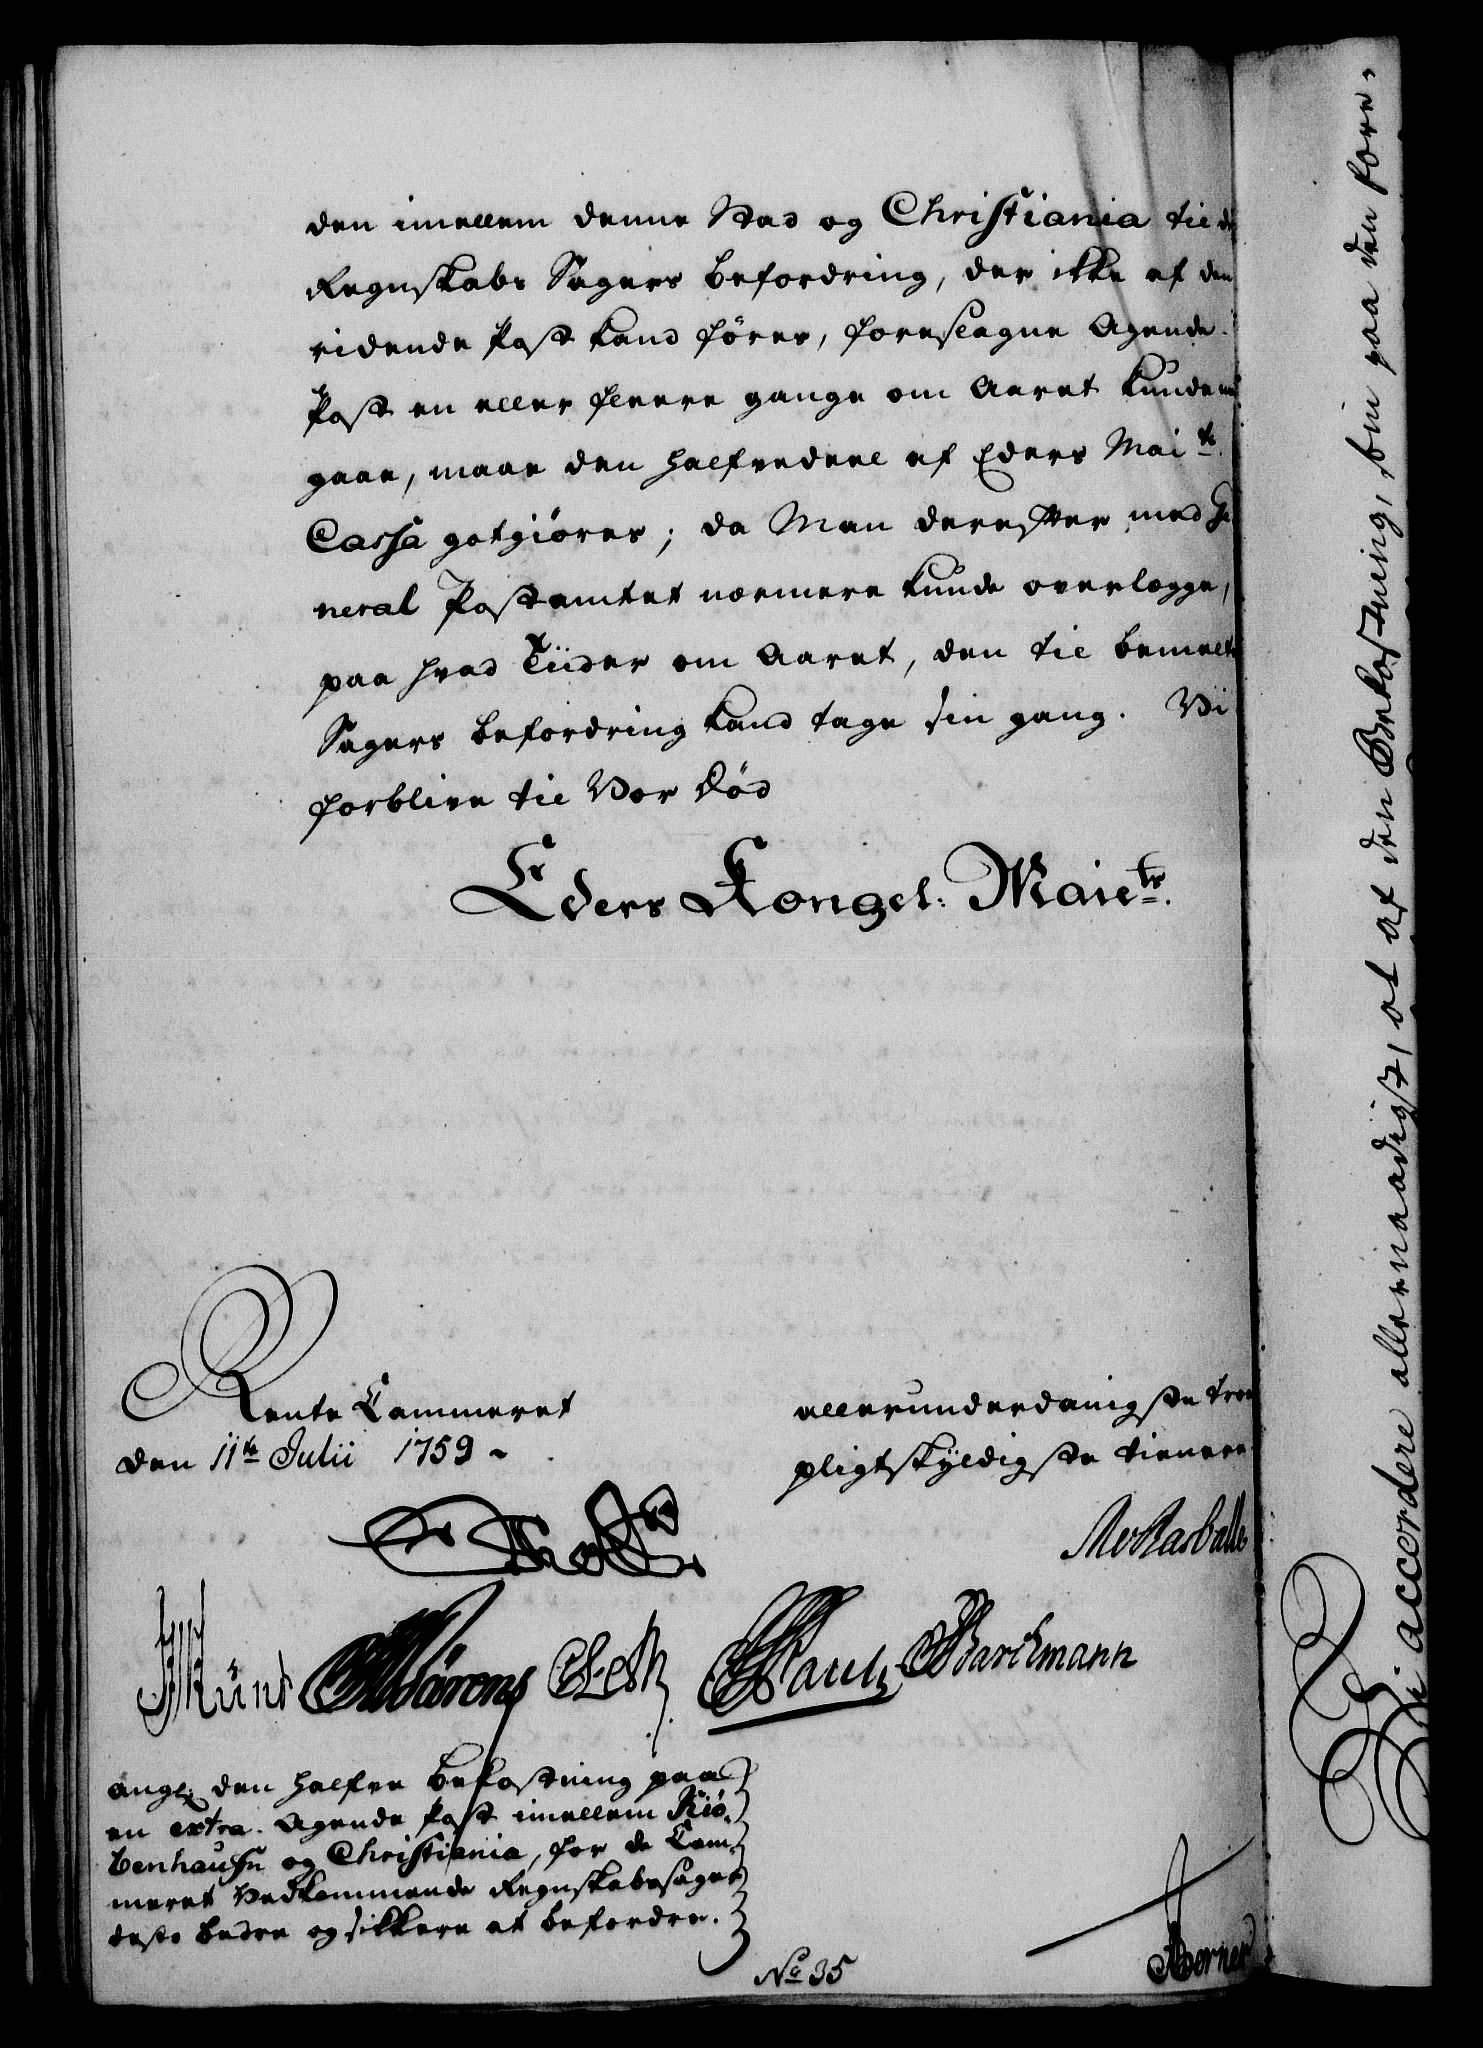 den imellem denne Stad og Christiania til de
Regnskabs Sagers befordring, der ikke af den
ridende Post kand føres, foreslagne Agende
Post en eller fleere gange om Aaret kunde
gaae, maae den halfvedeel af Eders Mai.ts
Cassa gotgiøres; da Man derefter med Ge
neral Postamtet nærmere kunde overlægge,
paa hvad Tiider om Aaret, den til bemelte
Sagers befordring kand tage sin gang. Vi
forblive til Vor Død
Eders Kongel: Maiets.
Rente Cammeret
den 11te Julii 1759
allerunderdanigste troe
pligtskyldigste tienere
Barchmann
angl: den halfve bekostning paa
en extra. Agende Post imellem Kiø,
benhaufn og Christiania, for de Cam,
meret Vedkommende Regnskabssager
desto bedre og sikkere at befordre.
No 35
Vi accordere allernaadigst, at af den Bekostning, som paa den fore,